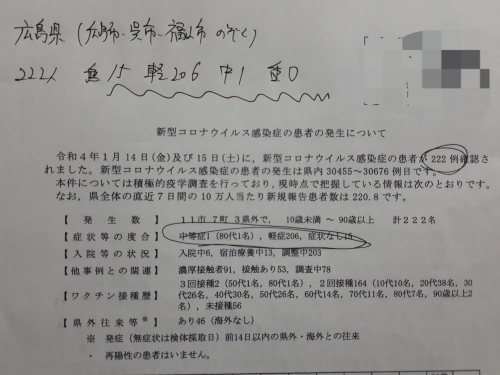 広島県（広島市、呉市、福山市のぞく）
222人 無15 軽206 中1 重0
新型コロナウイルス感染症の患者の発生について
令和４年１月14日(金)及び15日(土)に、新型コロナウイルス感染症の患者が 222 例確認さ
れました。新型コロナウイルス感染症の患者の発生は県内 30455～30676 例目です。
本件については積極的疫学調査を行っており、現時点で把握している情報は次のとおりです。
なお、県全体の直近７日間の 10 万人当たり新規報告患者数は 220.8 です。
【 発 生 数 】 １１市７町３県外で、 10歳未満 ～ 90歳以上 計２２２名
【症状等の度合】 中等症1（80代1名）, 軽症206, 症状なし15
【入院等の状況】 入院中6, 宿泊療養中13, 調整中203
【他事例との関連】 濃厚接触者91, 接触あり53, 調査中78
【ワクチン接種歴】 ３回接種2（50代1名, 80代1名）, ２回接種164（10代10名, 20代38名, 30
代26名, 40代30名, 50代26名, 60代14名, 70代11名, 80代7名, 90歳以上2
名）, 未接種56
【県外往来等※】 あり46（海外なし）
※ 発症（無症状は検体採取日）前14日以内の県外・海外との往来
・ 再陽性の患者はいません。